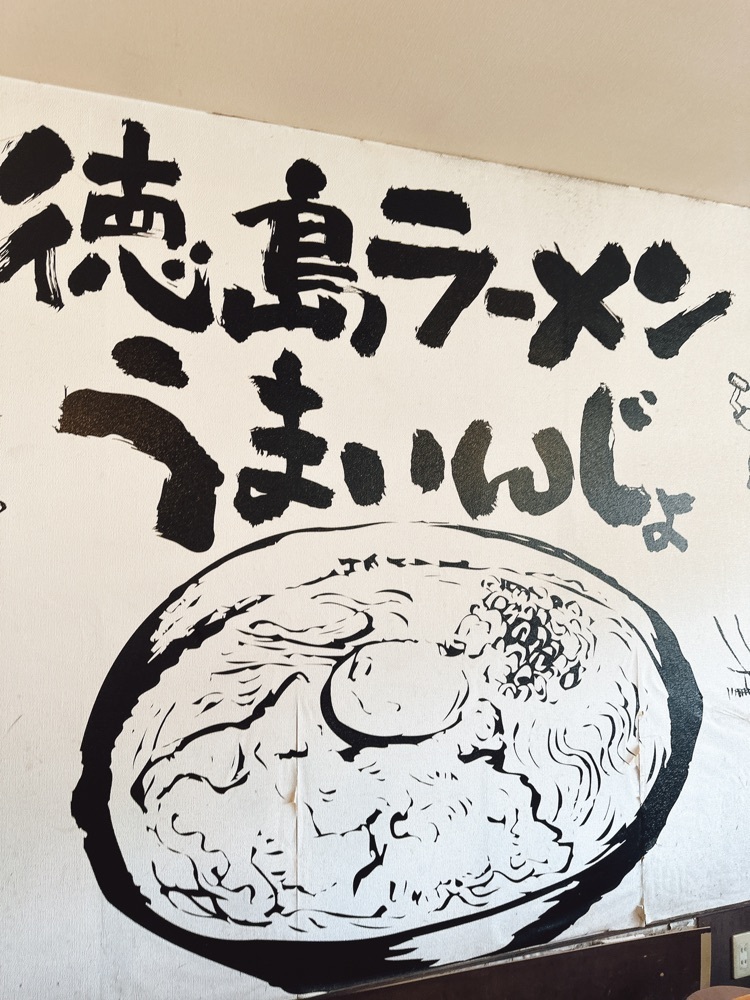 徳島ラーメン
うまいんじょ